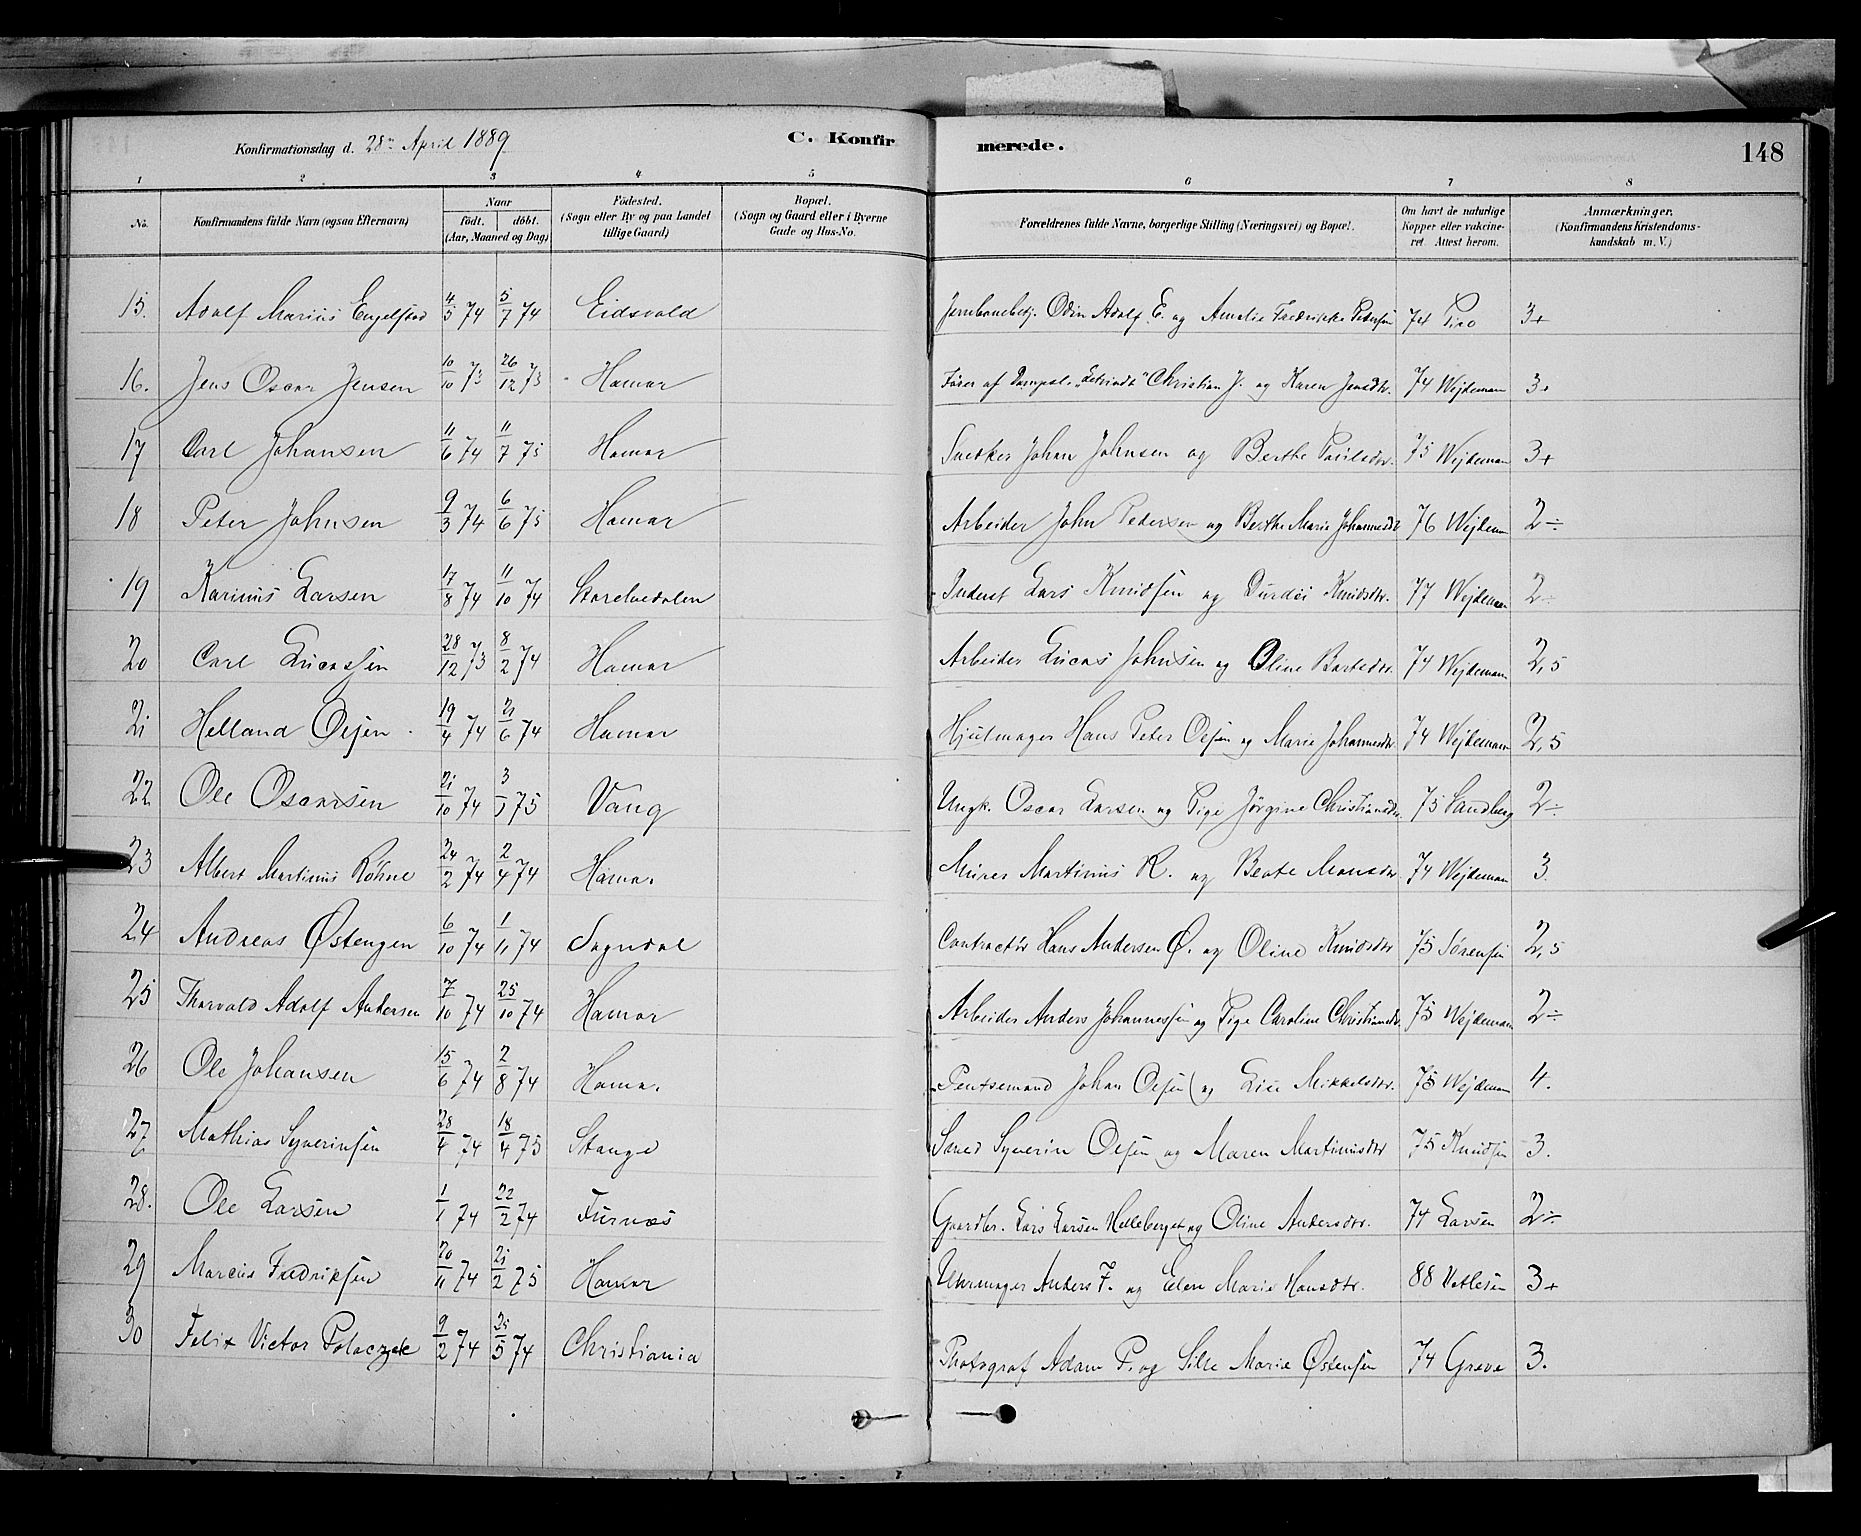 Konfirmationsdag d. 28de April 1889
C. Konfirmerede.
148
1 2 3 4 5 6 7 8
No. Konfirmandens fulde Navn (ogsaa Efternavn) Naar födt. döbt. (Aar, Maaned og Dag) Födested. (Sogn eller By og paa Landet tillige Gaard) Bopæl. (Sogn og Gaard eller i Byerne Gade og Hus-No. Forældrenes fulde Navne, borgerlige Stilling (Næringsvei) og Bopæl. Om havt de naturlige Kopper eller vakcineret. Attest herom. Anmærkninger. (Konfirmandens Kristendomskundskab m. V.)
15. Adolf Marius Engelstad 4/5 74 5/7 74 Eidsvold Jernbanebetj. Odin Adolf E. og Amalie Fredrikke Petersen 74 Piro 3+
16. Jens Oscar Jensen 10/10 73 26/12 73 Hamar Fører af Dampsk. Christian J. og Karen Jensdtr. 74 Wejdemann 3+
17 Carl Johansen 11/6 74 11/7 75 Hamar Snedker Johan Johnsen og Berthe Paulsdtr. 75 Wejdemann 3+
18 Peter Johnsen 9/3 74 6/6 75 Hamar Arbeider John Pedersen og Berthe Marie Johannesdtr 76 Wejdemann 2÷
19 Karinus Larsen 17/8 74 11/10 74 Storelvedalen Inderst Lars Knudsen og Durdei Knudsdtr. 77 Wejdemann 2÷
20 Carl Lucassen 28/12 73 8/2 74 Hamar Arbeider Lucas Johnsen og Oline Baardsdtr. 74 Wejdemann 2,5
21 Helland Olsen 19/4 74 21/6 74 Hamar Hjulmager Hans Peter Olsen og Marie Johannesdtr. 74 Wejdemann 2,5
22 Ole Oscarsen 21/10 74 3/1 75 Vang Ungk. Oscar Larsen og Pige Jørgine Christiansdtr. 75 Sandberg 2÷
23 Albert Martinius Røhne 24/2 74 2/4 74 Hamar Murer Martinius R. og Beate Monsdtr 74 Wejdemann 3.
24 Andreas Østengen 6/10 74 1/11 74 Sogndal Contractør Hans Andersen Ø. og Oline Knudsdtr 75 Sørensen 2,5
25 Thorvald Adolf Andersen 7/10 74 25/10 74 Hamar Arbeider Anders Johannessen og Pige Caroline Christiansdtr. 75 Wejdemann 2÷
26 Ole Johansen 15/6 74 2/8 74 Hamar Johan Olsen og Lise Mikkelsdtr. 75 Wejdemann 4.
27 Mathias Syverinsen 28/4 74 18/4 75 Stange Syverin Olsen og Maren Martinusdtr 75 Knudsen 3.
28. Ole Larsen 1/1 74 22/2 74 Furnæs Gaardbr. Lars Larsen Helleberget og Oline Andersdtr. 74 Larsen 2÷
29 Marcus Fredriksen 20/11 74 21/2 75 Hamar Uhrmager Anders F. og Ellen Marie Hansdtr. 88 Vetlesen 3+
30 Felix Victor Polaczek 9/2 74 25/5 74 Christiania Photograf Adam P. og Silse Marie Østensen 74 Greve 3.